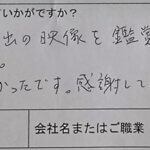 いかがですか？
出の映像を鑑賞
。
かったです。感謝して
会社名またはご職業